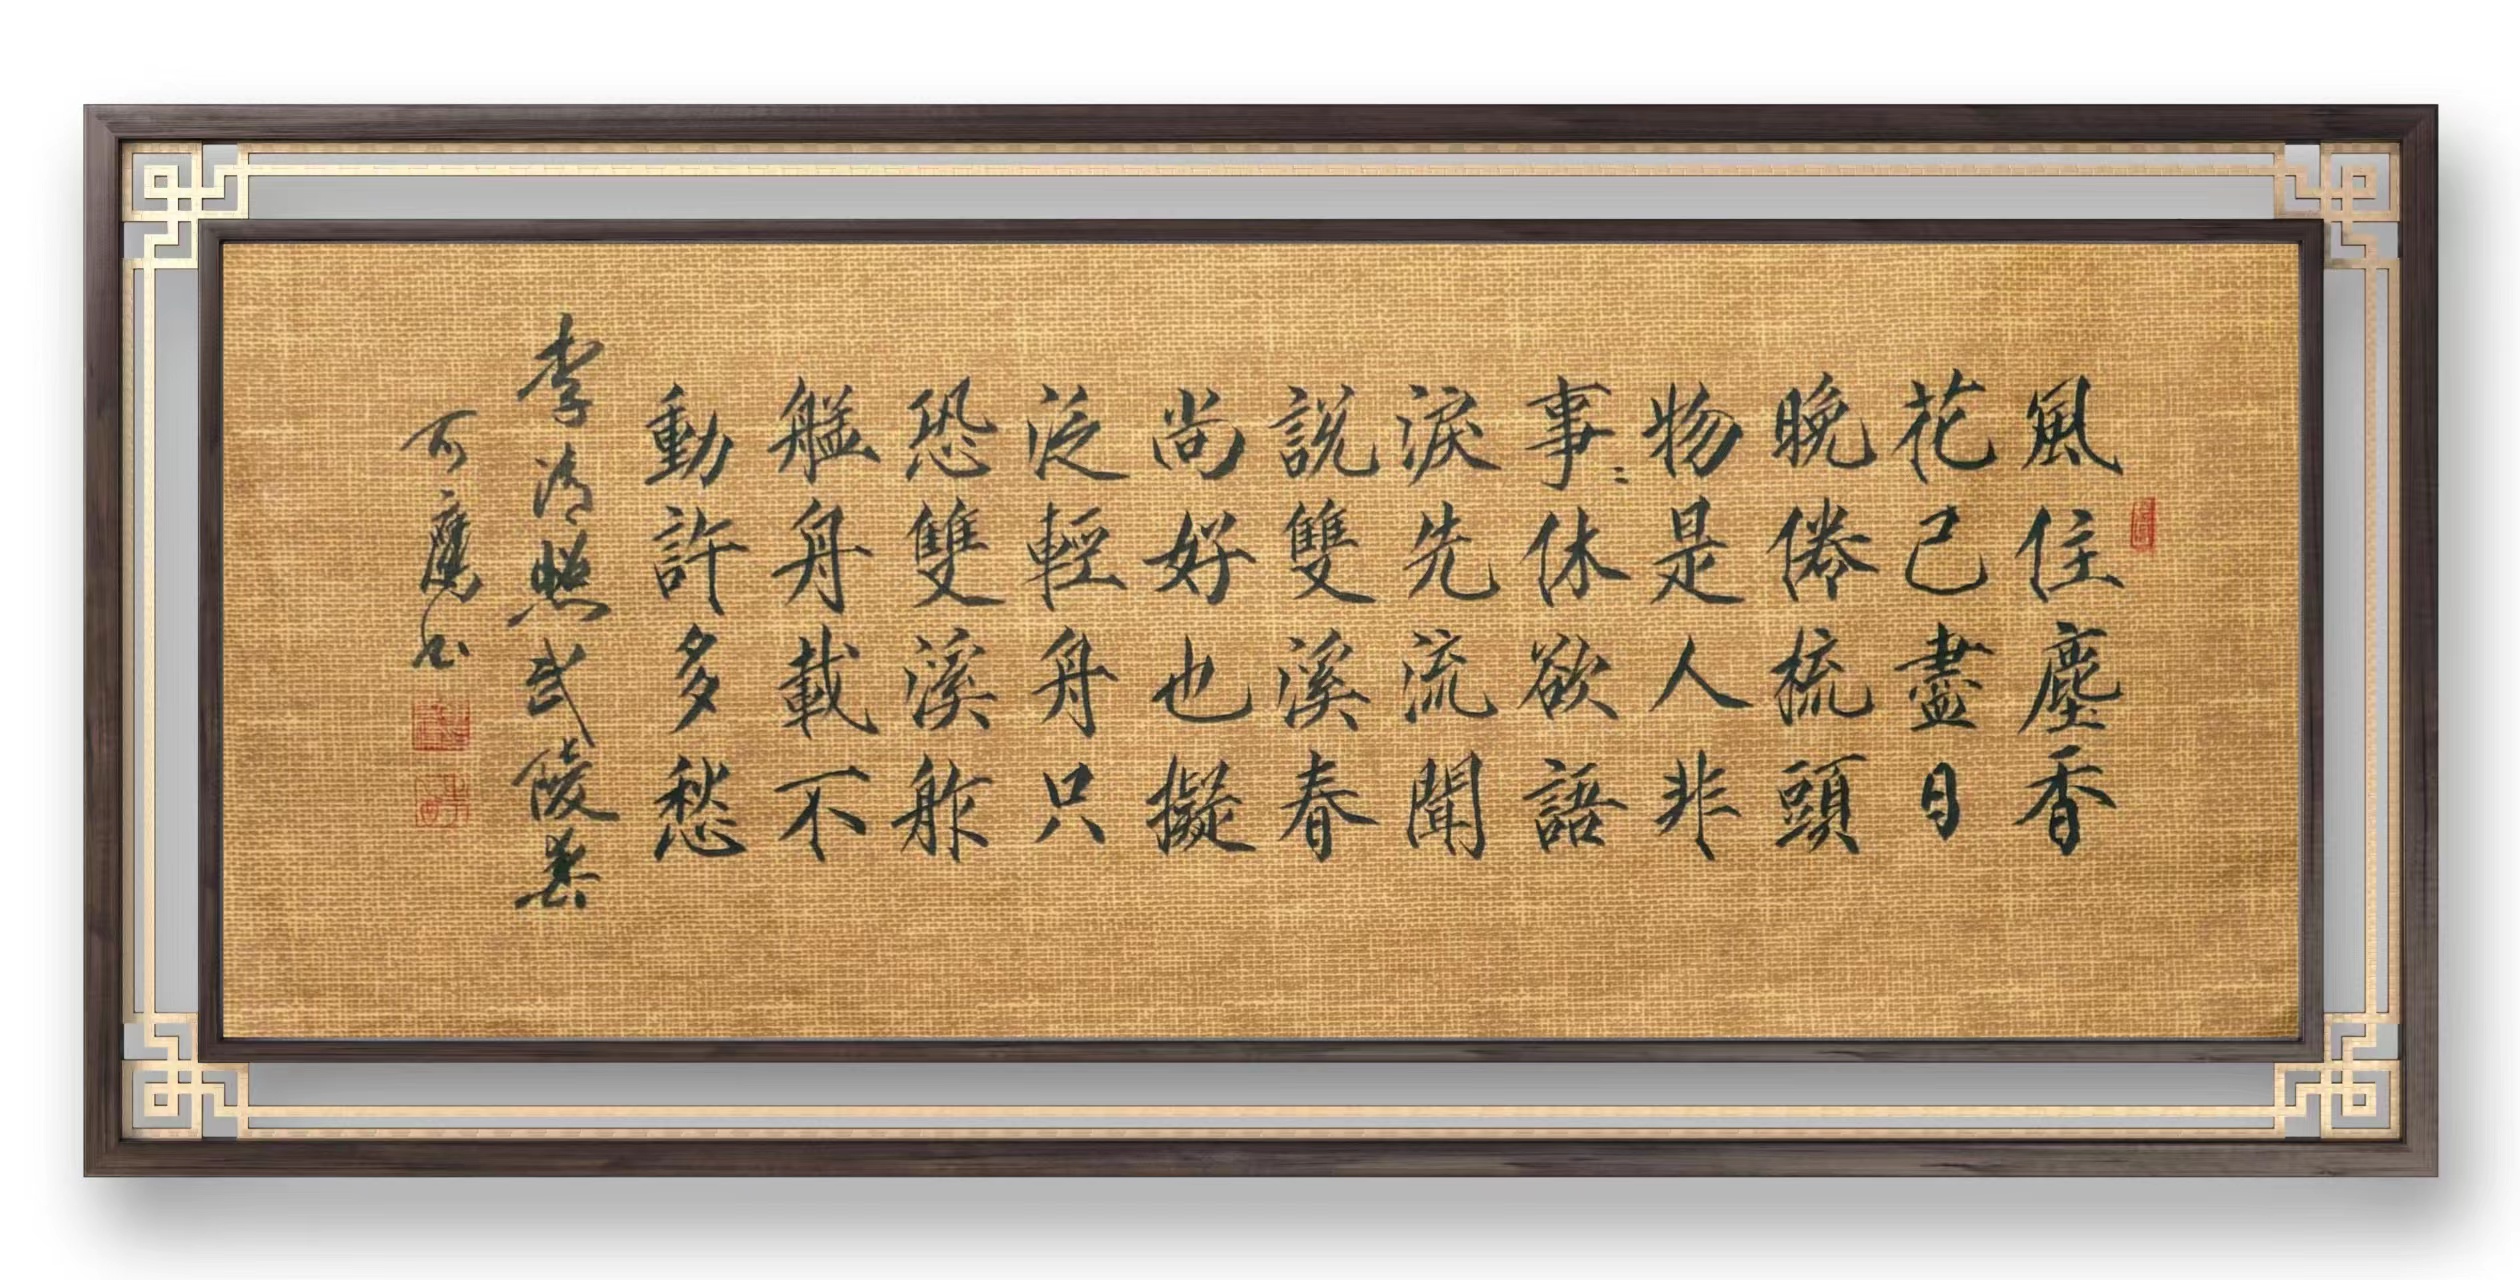 風住塵香
花已盡日
晚倦梳頭
物是人非
事〻休欲語
淚先流聞
說雙溪春
尚好也擬
泛輕舟只
恐雙溪舴
艋舟載不
動許多愁
李清照武陵春
可书